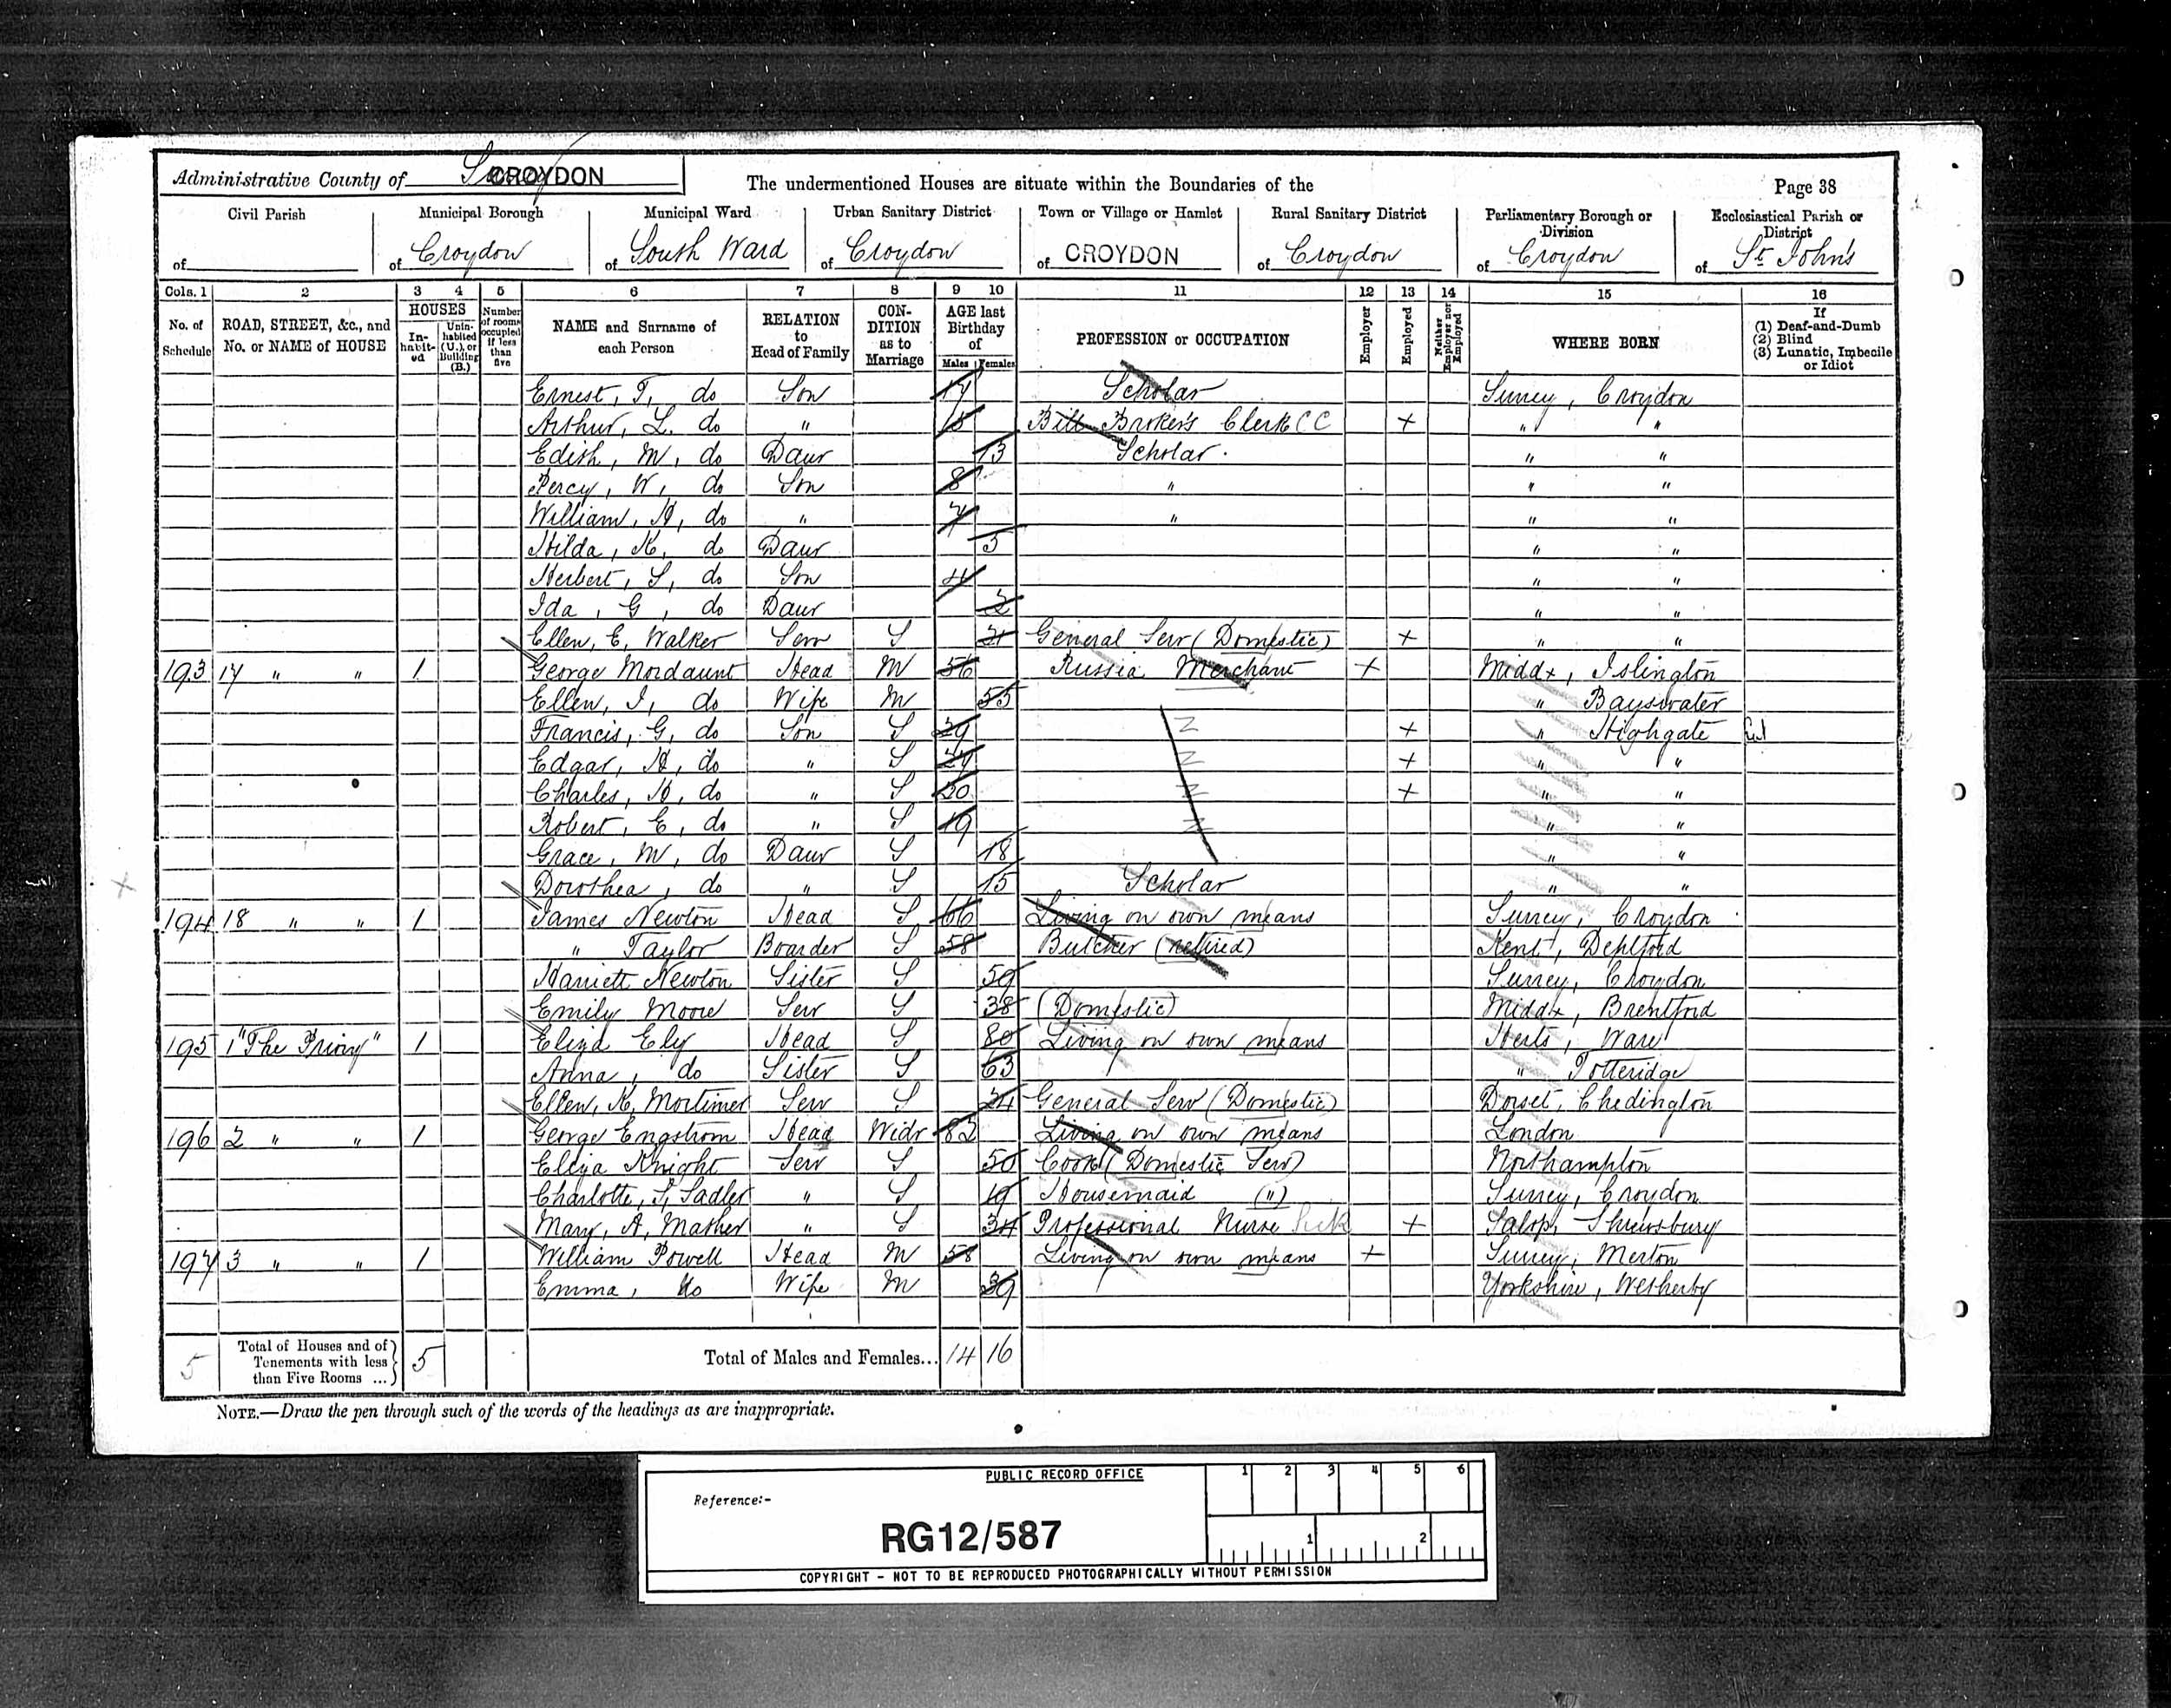 Administrative County of Surrey CROYDON The undermentioned Houses are situate within the Boundaries of the Page 38
Civil Parish Municipal Borough Municipal Ward Urban Sanitary District Town or Village or Hamlet Rural Sanitary District Parliamentary Borough or Division Ecclesiastical Parish or District
of of Croydon of South Ward of Croydon of CROYDON of Croydon of Croydon of St. John's
Cols. 1 2 3 4 5 6 7 8 9 10 11 12 13 14 15 16
No. of Schedule ROAD, STREET, &c., and No. or NAME of HOUSE HOUSES In-habit-ed Unin-habited (U.), or Building (B.) Number of rooms occupied if less than five NAME and Surname of each Person RELATION to Head of Family CON-DITION as to Marriage AGE last Birthday of Males Females PROFESSION or OCCUPATION Employer Employed Neither Employer nor Employed WHERE BORN If (1) Deaf-and-Dumb (2) Blind (3) Lunatic, Imbecile or Idiot
Ernest, T, do Son 17 Scholar Surrey, Croydon
Arthur, L. do " 15 Bill Brokers Clerk CC + " "
Edith, M, do Daur 13 Scholar. " "
Percy, W, do Son 8 " " "
William, H, do " 7 " " "
Hilda, K, do Daur 5 " "
Herbert, S, do Son 4 " "
Ida, G, do Daur 2 " "
Ellen, E, Walker Serv S 21 General Serv (Domestic) + " "
193 17 " " 1 George Mordaunt Head M 56 Russia Merchant + Middx, Islington
Ellen, I, do Wife M 55 " Bayswater
Francis, G, do Son S 29 + " Highgate
Edgar, H, do " S 27 + " "
Charles, H, do " S 20 + " "
Robert, E, do " S 19 " "
Grace, M, do Daur S 18 " "
Dorothea, do " S 15 Scholar " "
194 18 " " 1 James Newton Head S 66 Living on own means Surrey, Croydon
" Taylor Boarder S 58 Butcher (retired) Kent, Deptford
Harriett Newton Sister S 59 Surrey, Croydon
Emily Moore Serv S 38 (Domestic) Middx, Brentford
195 1 "The Priory" 1 Eliza Ely Head S 80 Living on own means Herts, Ware
Anna, do Sister S 63 " Totteridge
Ellen, K, Mortimer Serv S 24 General Serv (Domestic) Dorset, Chedington
196 2 " " 1 George Engstrom Head Widr 82 Living on own means London
Eliza Knight Serv S 50 Cook (Domestic Serv) Northampton
Charlotte, S, Sadler " S 19 Housemaid (") Surrey, Croydon
Mary, A, Mather " S 34 Professional Nurse Sick + Salop, Shrewsbury
197 3 " " 1 William Powell Head M 58 Living on own means + Surrey, Merton
Emma, do Wife M 39 Yorkshire, Wetherby
5 Total of Houses and of Tenements with less than Five Rooms ... 5 Total of Males and Females... 14 16
NOTE.—Draw the pen through such of the words of the headings as are inappropriate.
PUBLIC RECORD OFFICE 1 2 3 4 5 6
Reference:-
RG12/587 1 2
COPYRIGHT - NOT TO BE REPRODUCED PHOTOGRAPHICALLY WITHOUT PERMISSION